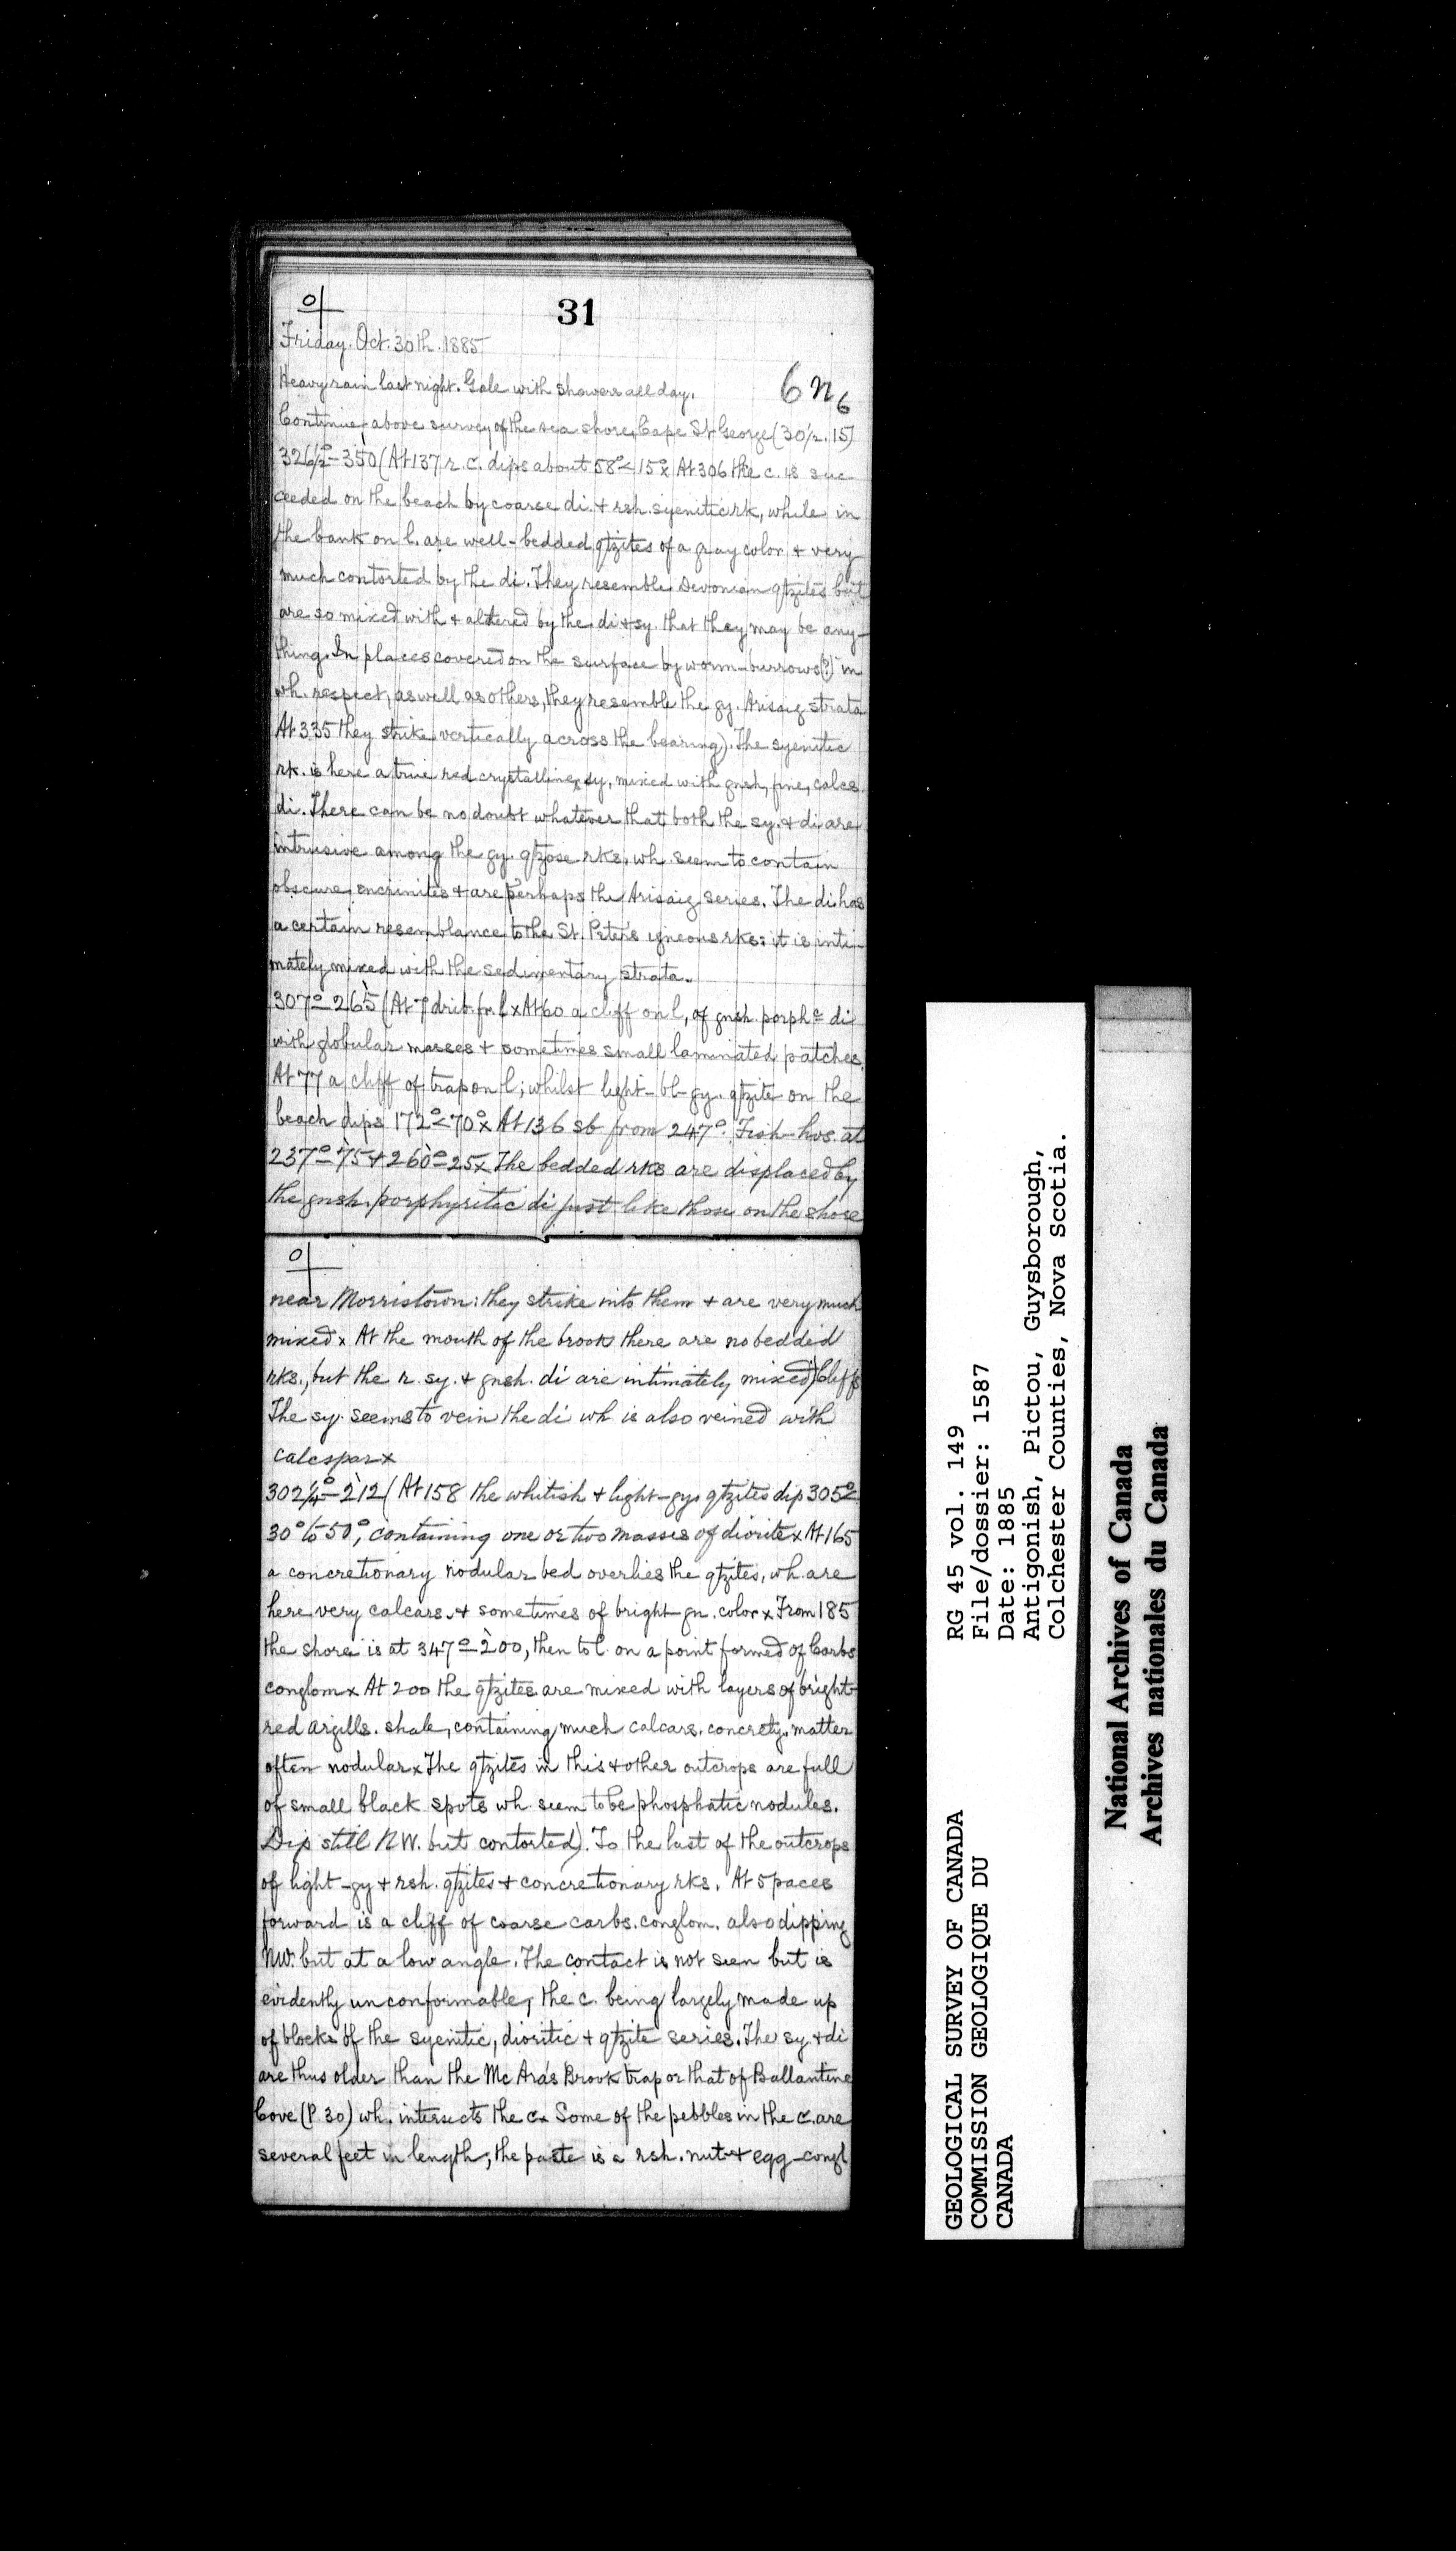 31
Friday. Oct. 30th. 1885
Heavy rain last night. Gale with showers all day.
6 n 6
Continue above survey of the sea shore, Cape St George (30½. 15)
326½°-350 (At 137 r. c. dips about 58°<15° x At 306 the c. is suc-
ceeded on the beach by coarse di. + rsh. syenitic rk, while in
the bank on l. are well-bedded qtzites of a gray color + very
much contorted by the di. They resemble Devonian qtzites but
are so mixed with + altered by the di + sy. that they may be any-
thing. In places covered on the surface by worm-burrows(?) in
wh. respect, as well as others, they resemble the gy. Arisaig strata
At 335 they strike vertically across the bearing). The syenitic
rk. is here a true red crystalline sy. mixed with gnsh, fine, calcs
di. There can be no doubt whatever that both the sy. + di are
intrusive among the gy. qtzose rks. wh. seem to contain
obscure encrinites + are perhaps the Arisaig series. The di has
a certain resemblance to the St. Peter's igneous rks: it is inti-
mately mixed with the sedimentary strata.
307°-265 (At 7 drib. fr. l x At 60 a cliff on l, of gnsh. porphc di
with globular masses + sometimes small laminated patches.
At 77 a cliff of trap on l; whilst light-bl-gy. qtzite on the
beach dips 172°<70° x At 136 sb from 247°. Fish-hos. at
237°-75 + 260°-25 x The bedded rks are displaced by
the gnsh. porphyritic di just like those on the shore
near Morristown: they strike into them + are very much
mixed x At the mouth of the brook there are no bedded
rks., but the r. sy. + gnsh. di are intimately mixed) Cliffs
The sy. seems to vein the di wh is also veined with
calcspar x
302¼°-212 (At 158 the whitish + light-gy. qtzites dip 305°<
30° to 50°, containing one or two masses of diorite x At 165
a concretionary nodular bed overlies the qtzites, wh. are
here very calcars. + sometimes of bright-gn. color x From 185
the shore is at 347°-200, then to l. on a point formed of Carbs
conglom x At 200 the qtzites are mixed with layers of bright
red argills. shale, containing much calcars. concrety. matter
often nodular x The qtzites in this + other outcrops are full
of small black spots wh. seem to be phosphatic nodules.
Dip still NW. but contorted). To the last of the outcrops
of light-gy + rsh. qtzites + concretionary rks. At 5 paces
forward is a cliff of coarse carbs. conglom. also dipping
NW. but at a low angle. The contact is not seen but is
evidently unconformable, the c. being largely made up
of blocks of the syenitic, dioritic + qtzite series. The sy. + di
are thus older than the McAra's Brook trap or that of Ballantine
Cove (P. 30) wh. intersects the c x Some of the pebbles in the c. are
several feet in length; the paste is a rsh. nut + egg-congl
RG 45 vol. 149
File/dossier: 1587
Date: 1885
Antigonish, Pictou, Guysborough,
Colchester Counties, Nova Scotia.
GEOLOGICAL SURVEY OF CANADA
COMMISSION GEOLOGIQUE DU
CANADA
National Archives of Canada
Archives nationales du Canada